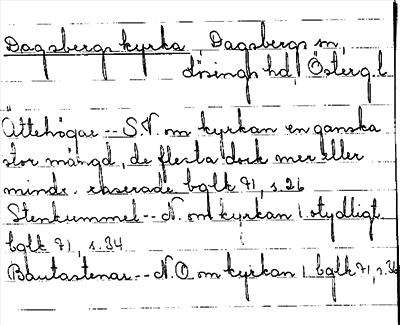 Dagsbergs kyrka, Dagsbergs sn,
Lösings hd, Österg. l.
Ättehögar -- S.V. om kyrkan en ganska
stor mängd, de flesta dock mer eller
mindr. raserade bqlk 71, s. 26
Stenkummel -- N. om kyrkan 1 otydligt.
bqlk 71, s. 34
Bautastenar -- N.O om kyrkan 1 bqlk 71, s. 36